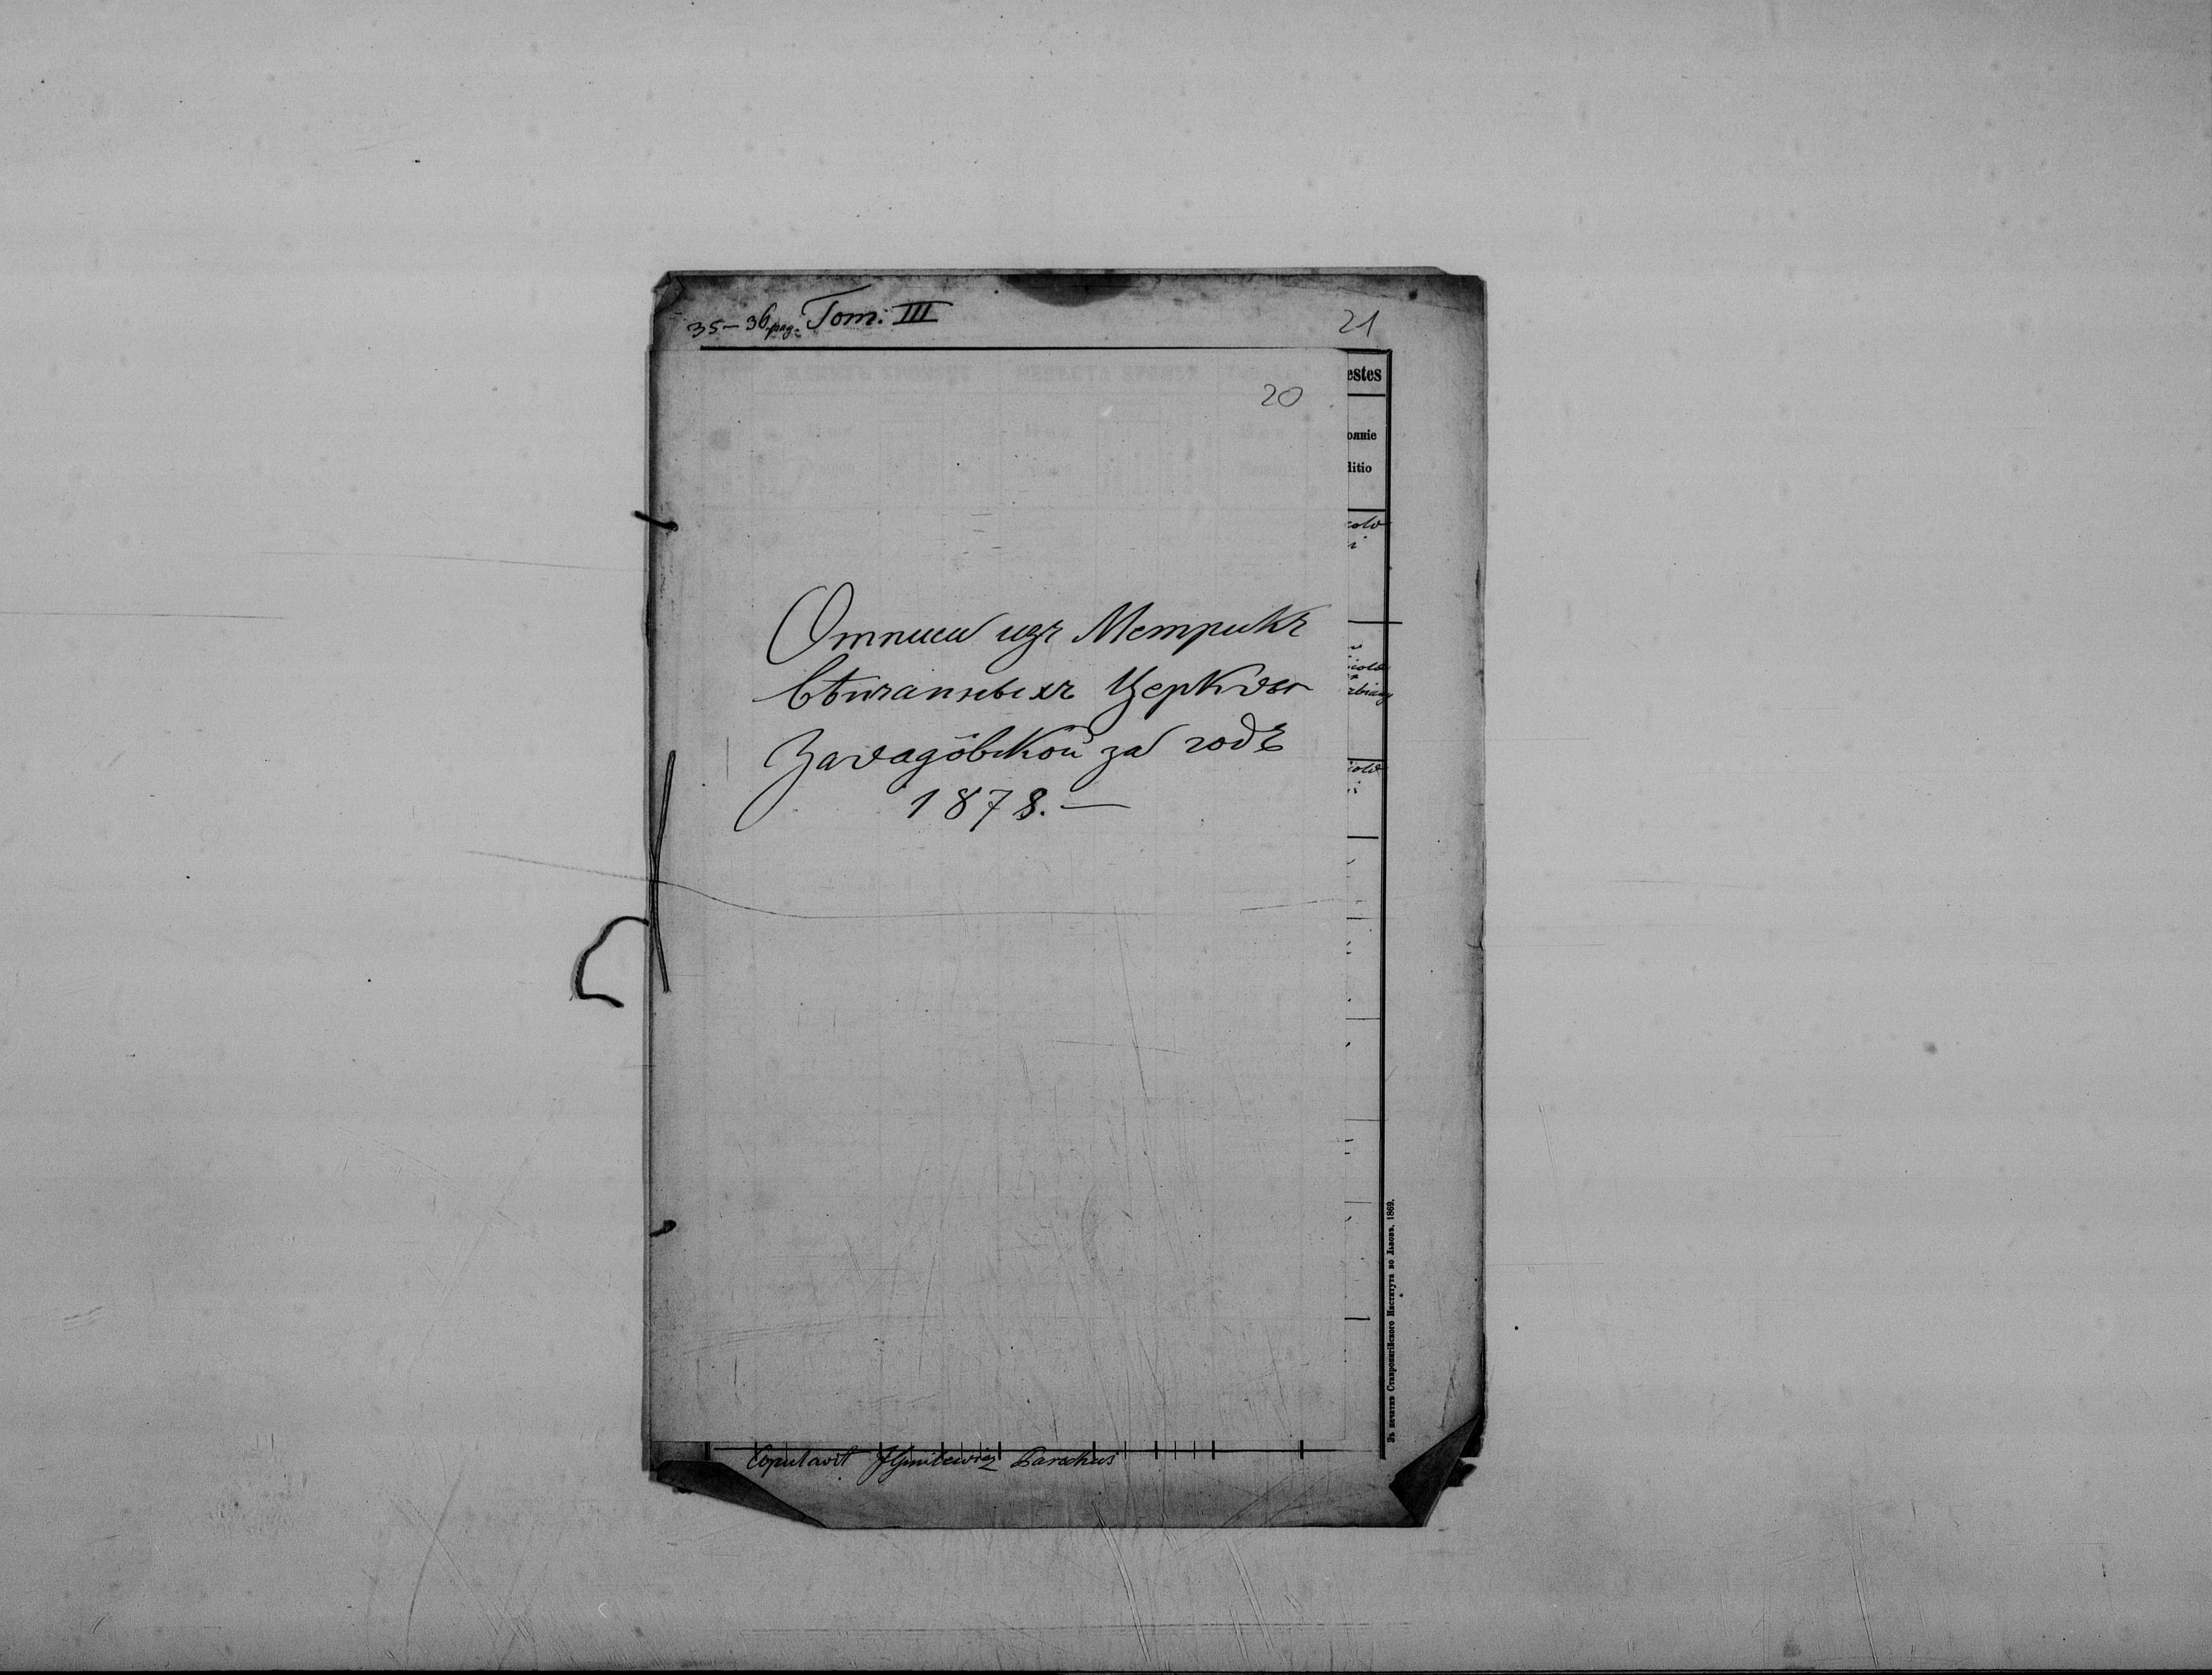 35–36 pag. Tom. III
21
20
estes
ditio
Отписи изъ Метрикъ
вѣнчанныхъ Церкви
Завадôвскои за годъ
1878.—
Copulavit Parochus
Въ печатнѣ Ставропигійского Института во Львовѣ, 1869.